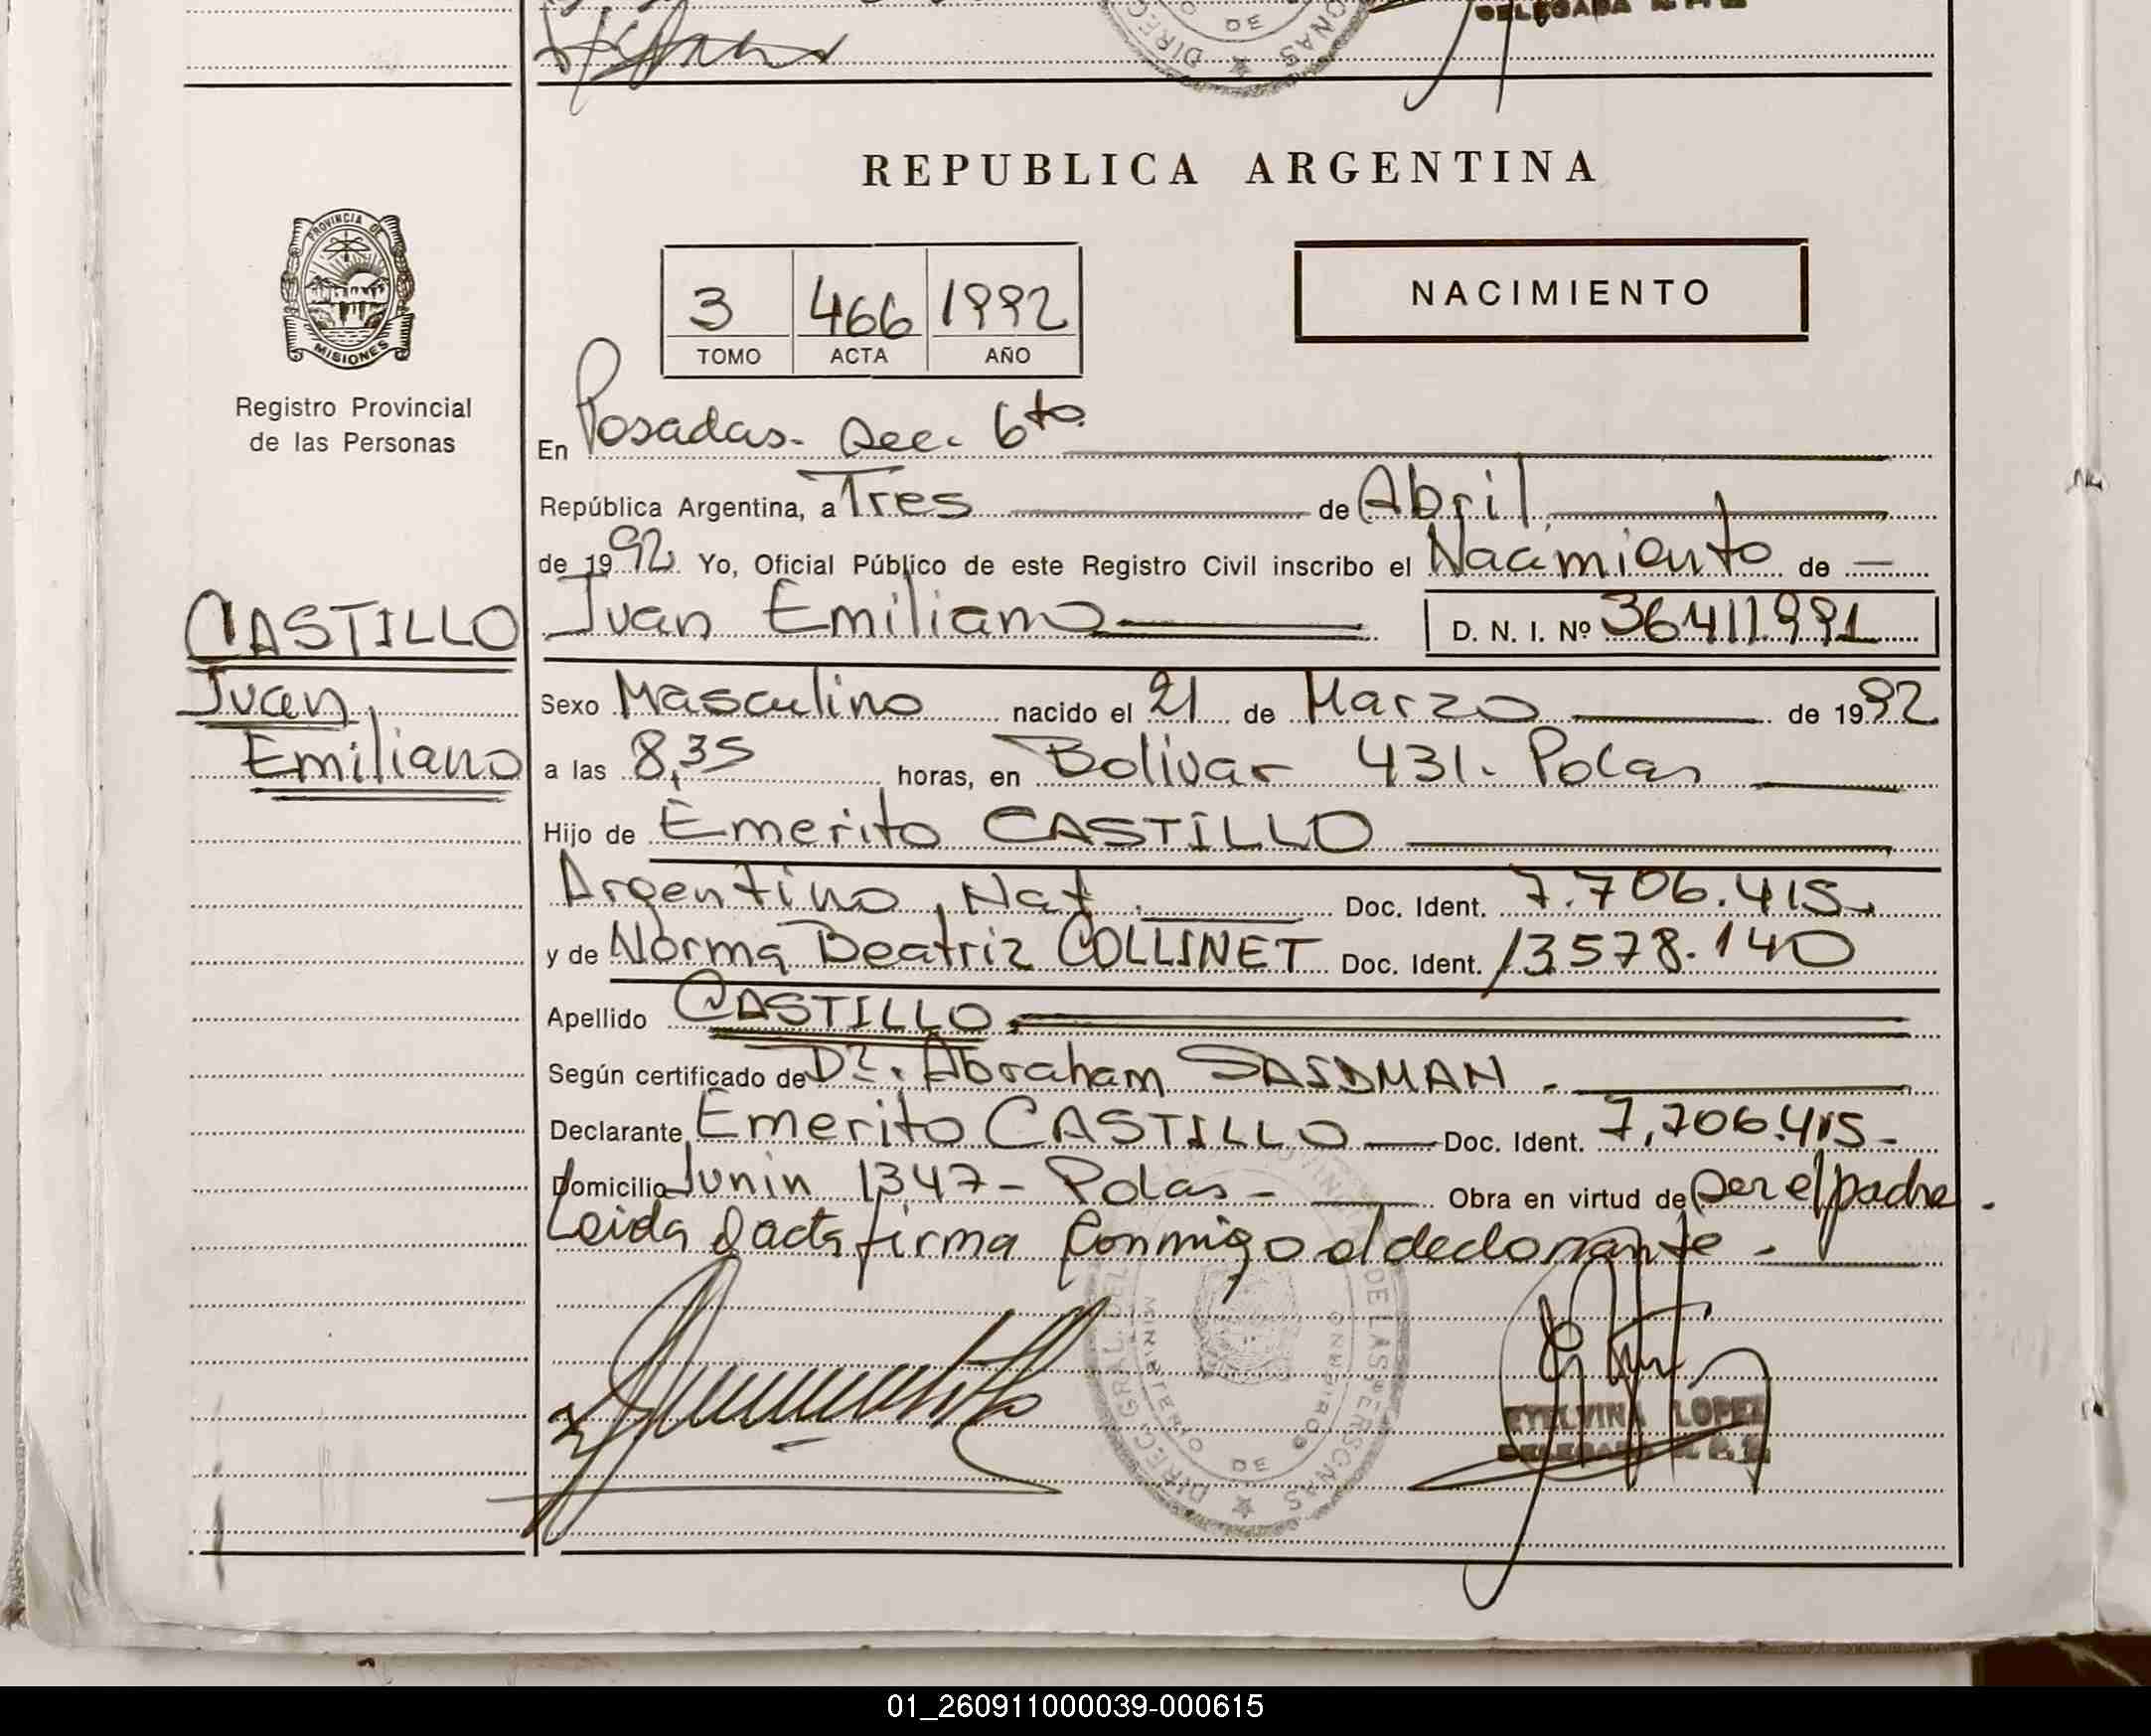 DELEGADA R.P.P.
REPUBLICA ARGENTINA
PROVINCIA DE
MISIONES
Registro Provincial
de las Personas
3 466 1992
TOMO ACTA AÑO
NACIMIENTO
En Posadas. Sec. 6ta
República Argentina, a Tres de Abril
de 1992 Yo, Oficial Público de este Registro Civil inscribo el Nacimiento de
CASTILLO
Juan
Emiliano
Juan Emiliano D. N. I. Nº 36411991
Sexo Masculino nacido el 21 de Marzo de 1992
a las 8,35 horas, en Bolivar 431. Pdas
Hijo de Emerito CASTILLO
Argentino, Nat. Doc. Ident. 7.706.415.
y de Norma Beatriz COLLINET Doc. Ident. 13578.140
Apellido CASTILLO
Según certificado de Dr. Abraham
Declarante Emerito CASTILLO Doc. Ident. 7.706.415-
Domicilio Junin 1347- Pdas- Obra en virtud de ser el padre.
Leida el acta firma conmigo el declarante.
ETELVINA LOPEZ
01_260911000039-000615